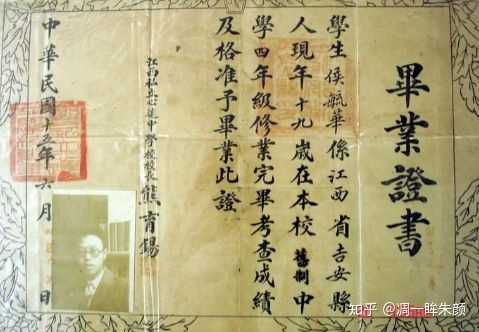 畢業證書
學生侯毓華係江西省吉安縣
人現年十九歲在本校舊制中
學四年級修業完畢考查成績
及格准予畢業此證
江西私立心遠中學校校長熊育錫
中華民國十五年六月日
知乎 @凋一眸朱颜